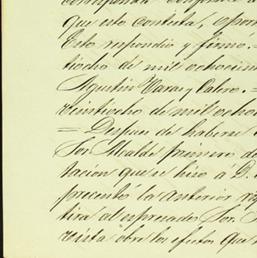 correspondia
que esto contesta,
Esto respondio y firmo.=
tiocho de mil ochocien
Agustin Varas y Calero.=
veintiocho de mil ochoc
= Despues de haberse
Sor. Alcalde primero de
tacion que se hizo a D.
presentó la anterior res
tirá al espresado Sor.
cinta obre los efectos que